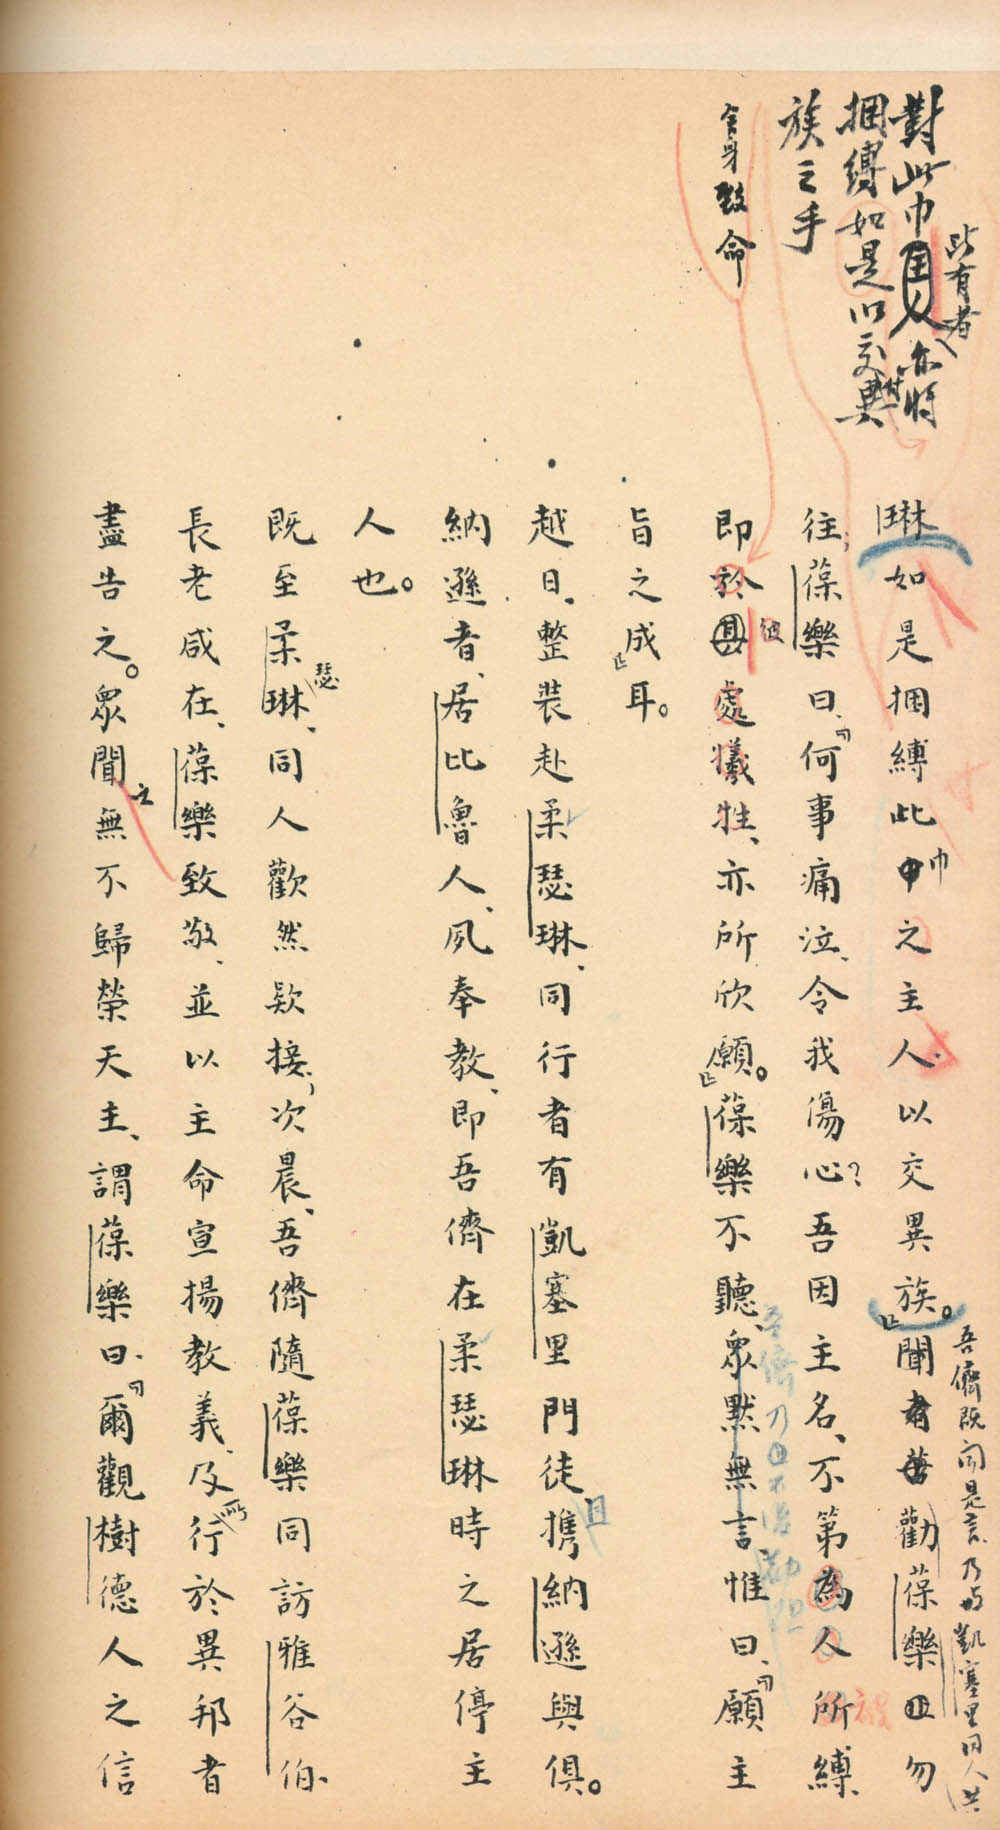 對此巾亦將
此有者
捆縛如是以交異
族之手
舍身致命
琳如是捆縛此巾之主人以交異族。聞者勸葆樂勿
吾儕既聞是言、乃與凱塞里同人共
往；葆樂曰、「何事痛泣、令我傷心？吾因主名、不第為人所縛、
即於彼處犧牲、亦所欣願。」葆樂不聽、眾默無言、惟曰、「願主
旨之成耳。」
越日、整裝赴柔瑟琳、同行者有凱塞里門徒、且攜納遜與俱。
納遜者、居比魯人、夙奉教、即吾儕在柔瑟琳時之居停主
人也。
既至柔瑟琳、同人歡然欵接；次晨、吾儕隨葆樂同訪雅谷伯、
長老咸在、葆樂致敬、並以主命宣揚教義、及所行於異邦者
盡告之。眾聞之無不歸榮天主、謂葆樂曰、「爾觀樹德人之信